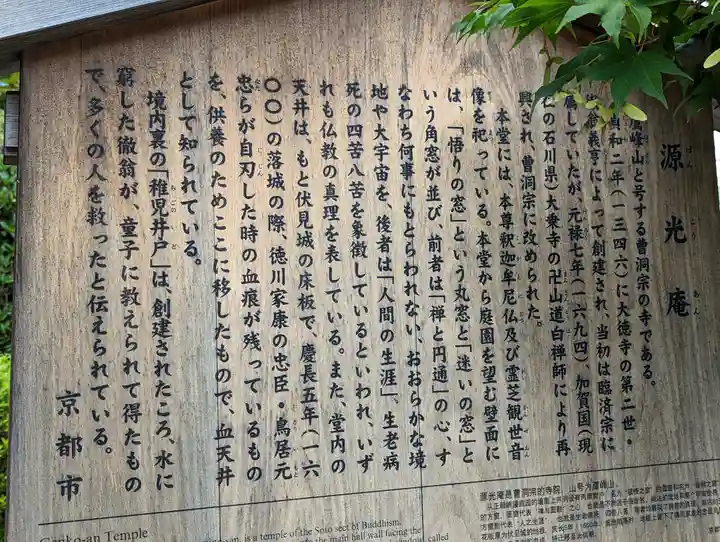 源光庵
げん こう あん
鷹峰山と号する曹洞宗の寺である。
貞和二年(一三四六)に大徳寺の第二世・
徹翁義亨によって創建され、当初は臨済宗に
属していたが、元禄七年(一六九四)、加賀国(現
在の石川県)大乗寺の卍山道白禅師により再
興され、曹洞宗に改められた。
本堂には、本尊釈迦牟尼仏及び霊芝観世音
像を祀っている。本堂から庭園を望む壁面に
は、「悟りの窓」という丸窓と「迷いの窓」と
いう角窓が並び、前者は「禅と円通」の心、す
なわち何事にもとらわれない、おおらかな境
地や大宇宙を、後者は「人間の生涯」、生老病
死の四苦八苦を象徴しているといわれ、いず
れも仏教の真理を表している。また、堂内の
天井は、もと伏見城の床板で、慶長五年(一六
〇〇)の落城の際、徳川家康の忠臣・鳥居元
忠らが自刃した時の血痕が残っているもの
を、供養のためここに移したもので、血天井
として知られている。
境内裏の「稚児井戸」は、創建されたころ、水に
窮した徹翁が、童子に教えられて得たもの
で、多くの人を救ったと伝えられている。
京都市
Genko-an Temple
is a temple of the Soto sect of Buddhism.
the main hall wall facing the
源光庵是曹洞宗的寺院,山号为鹰峰山。